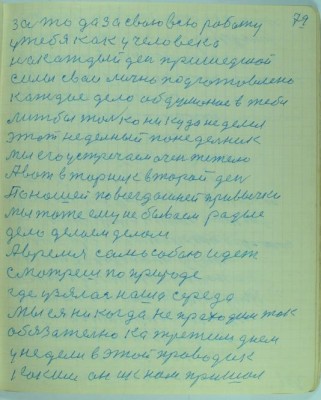 79
за то да за свою всю работу
у тебя как у человека
на каждый ден пришедшой
силы сваи лично подготовлено
каждае дело обдуманае в тебя
лиш бы толко никуда не делся
этот неделный понеделник
мы его устречаем очен тежело
А вот вторник второй ден
По нашей повседашней привычки
мы тоже ему не бываем радые
дело делаем делом
А время само собаю идеть
смотреш по природе
где узялас наша середа
мы ся никогда не праходим так
обязателно ка третим днем
у недели в этой
таким он и к нам пришол